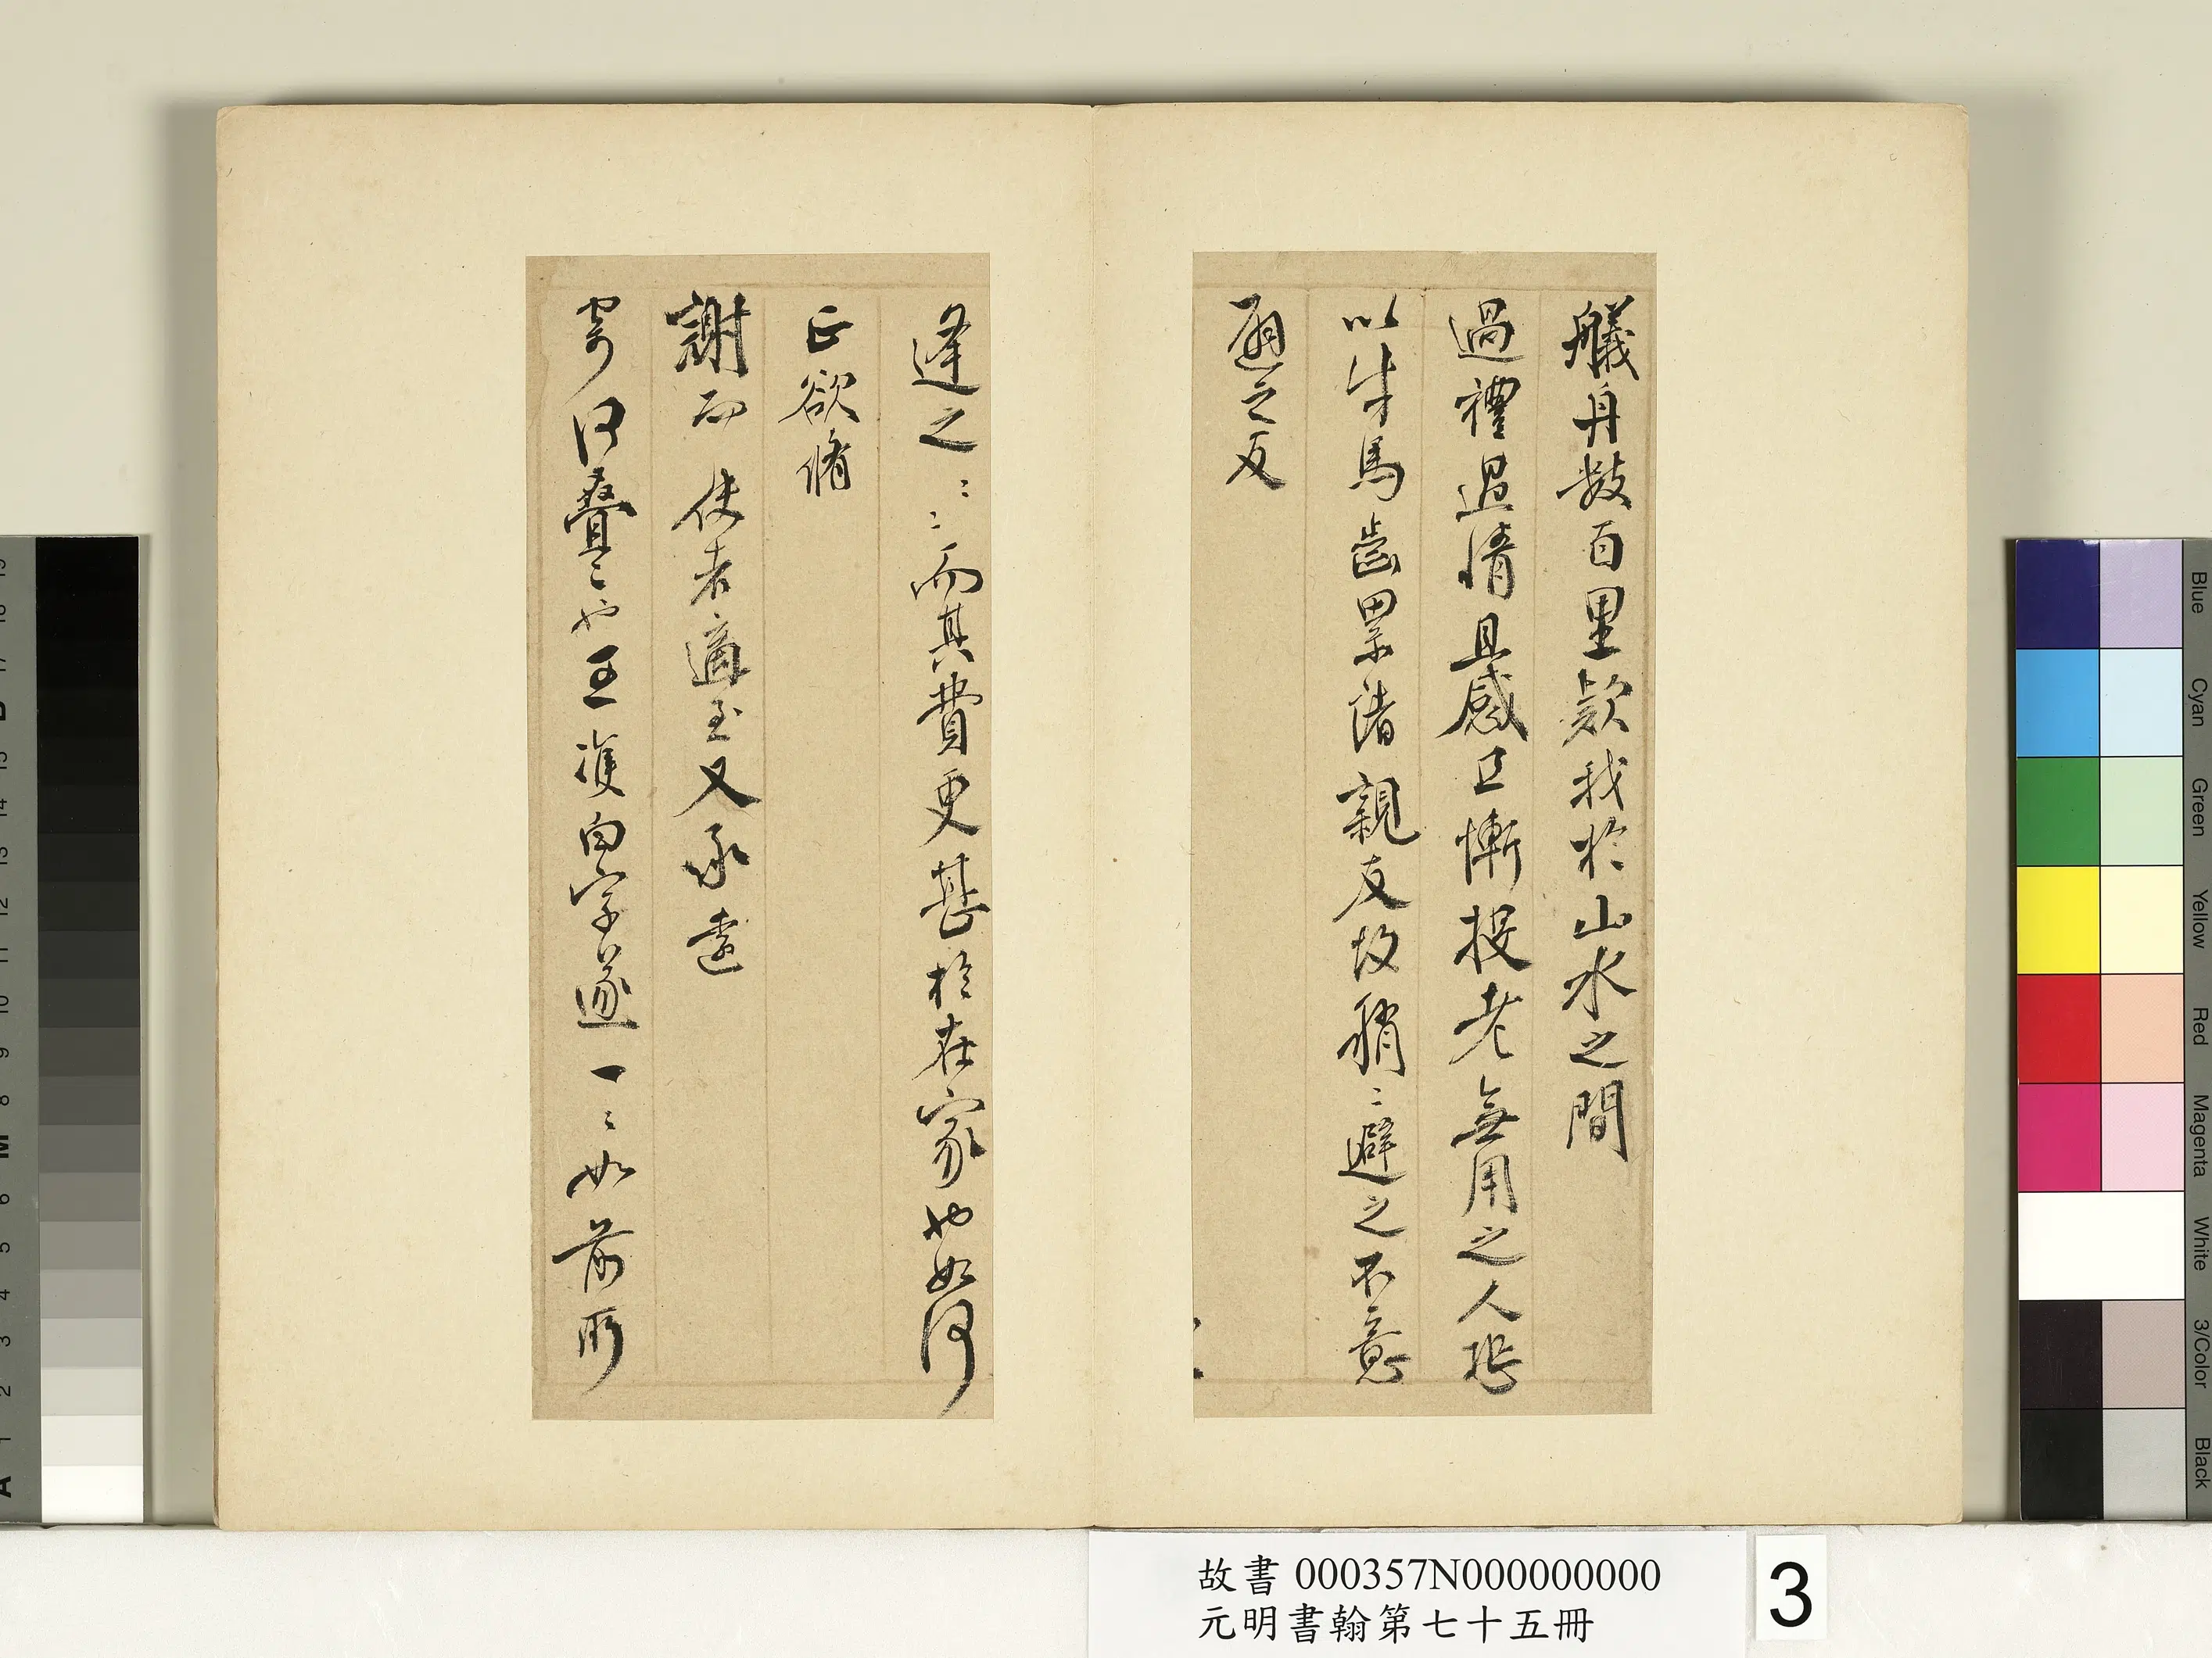 艤舟數百里款我於山水之間
過禮過情且感且慚投老無用之人恐
以牛馬齒累諸親友故稍〻避之不意
避之反
逢之〻〻而其費更甚於在家也如何
正欲脩
謝而使者適至又承遠
寄何疊〻也王履白字遂一〻如前所
故書 000357N000000000
元明書翰第七十五冊
3
Blue
Cyan
Green
Yellow
Red
Magenta
White
3/Color
Black
A 1 2 3 4 5 6 M 8 9 10 11 12 13 14 15 B 17 18 19